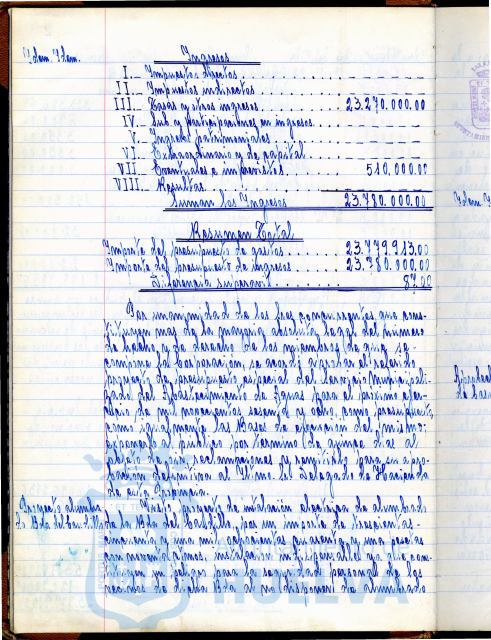 Idem. Idem.
Ingresos
I.- Impuestos directos
II.- Impuestos indirectos
III.- Tasas y otros ingresos 23.270.000.00
IV.- Sub. y participaciones en ingresos
V.- Ingresos patrimoniales
VI.- Extraordinario y de capital
VII.- Eventuales e imprevistos 510.000.00
VIII.- Resultas
Suman los Ingresos 23.780.000.00
Resumen Total
Importe del presupuesto de gastos 23.779.913.00
Importe del presupuesto de ingresos 23.780.000.00
Diferencia superavit 87.00
Por unanimidad de los tres concurrentes que cons-
tituyen mas de la mayoria absoluta legal del número
de hecho y de derecho de los miembros de que se
compone la Corporación, se acordó aprobar el referido
proyecto de presupuesto especial del Servicio Municipali-
zado del Abastecimiento de Aguas para el próximo ejer-
cicio de mil novecientos sesenta y ocho, como presupuesto,
como igualmente las Bases de ejecución del mismo;
exponerlo al público por término de quince dias al
objeto de oir reclamaciones y remitirlo para su apro-
bación definitiva al Iltmo. Sr. Delegado de Hacienda
de esta Provincia.
Proyecto alumbra
do Bda. del Carmen
proyecto de instalación electrica de alumbrado
de la Bda. del por un importe de trescientas
cincuenta y una mil ochocientas cuarenta y una pesetas
con noventa cmos. instalación indispensable ya que cons-
tituyen un peligro para la seguridad personal de los
vecinos de dicha Bda. al no disponer de alumbrado
HUELVA